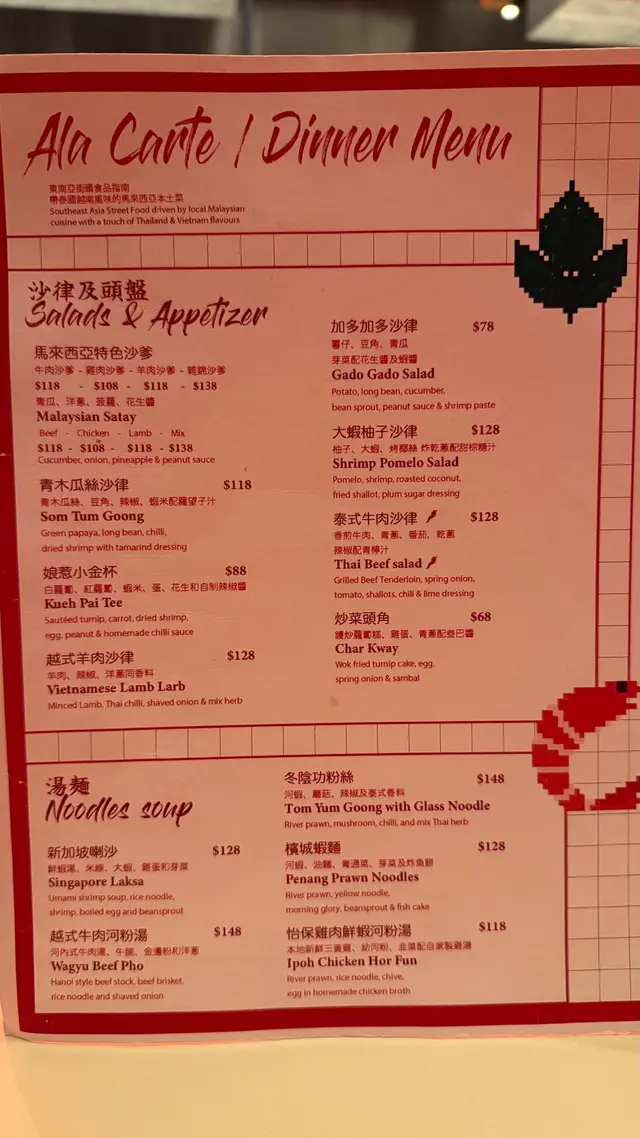 Ala Carte / Dinner Menu
東南亞街頭食品指南
帶泰國越南風味的馬來西亞本土菜
Southeast Asia Street Food driven by local Malaysian
cuisine with a touch of Thailand & Vietnam flavours
沙律及頭盤
Salads & Appetizer
馬來西亞特色沙爹
牛肉沙爹 - 雞肉沙爹 - 羊肉沙爹 - 雜錦沙爹
$118 - $108 - $118 - $138
青瓜、洋蔥、菠蘿、花生醬
Malaysian Satay
Beef - Chicken - Lamb - Mix
$118 - $108 - $118 - $138
Cucumber, onion, pineapple & peanut sauce
青木瓜絲沙律 $118
青木瓜絲、豆角、辣椒、蝦米配羅望子汁
Som Tum Goong
Green papaya, long bean, chilli,
dried shrimp with tamarind dressing
娘惹小金杯 $88
白蘿蔔、紅蘿蔔、蝦米、蛋、花生和自制辣椒醬
Kueh Pai Tee
Sautéed turnip, carrot, dried shrimp,
egg, peanut & homemade chilli sauce
越式羊肉沙律 $128
羊肉、辣椒、洋蔥同香料
Vietnamese Lamb Larb
Minced Lamb, Thai chilli, shaved onion & mix herb
加多加多沙律 $78
薯仔、豆角、青瓜
芽菜配花生醬及蝦醬
Gado Gado Salad
Potato, long bean, cucumber,
bean sprout, peanut sauce & shrimp paste
大蝦柚子沙律 $128
柚子、大蝦、烤椰絲 炸乾蔥配甜棕糖汁
Shrimp Pomelo Salad
Pomelo, shrimp, roasted coconut,
fried shallot, plum sugar dressing
泰式牛肉沙律 $128
香煎牛肉、青蔥、番茄, 乾蔥
辣椒配青檸汁
Thai Beef salad
Grilled Beef Tenderloin, spring onion,
tomato, shallots, chili & lime dressing
炒菜頭角 $68
鑊炒蘿蔔糕、雞蛋、青蔥配叄巴醬
Char Kway
Wok fried turnip cake, egg,
spring onion & sambal
湯麵
Noodles soup
新加坡喇沙 $128
鮮蝦湯、米線、大蝦、雞蛋和芽菜
Singapore Laksa
Umami shrimp soup, rice noodle,
shrimp, boiled egg and beansprout
越式牛肉河粉湯 $148
河內式牛肉湯、牛腩、金邊粉和洋蔥
Wagyu Beef Pho
Hanoi style beef stock, beef brisket,
rice noodle and shaved onion
冬陰功粉絲 $148
河蝦、蘑菇、辣椒及泰式香料
Tom Yum Goong with Glass Noodle
River prawn, mushroom, chilli, and mix Thai herb
檳城蝦麵 $128
河蝦、油麵、青通菜、芽菜及炸魚餅
Penang Prawn Noodles
River prawn, yellow noodle,
morning glory, beansprout & fish cake
怡保雞肉鮮蝦河粉湯 $118
本地新鮮三黃雞、幼河粉、韭菜配自家製雞湯
Ipoh Chicken Hor Fun
River prawn, rice noodle, chive,
egg in homemade chicken broth